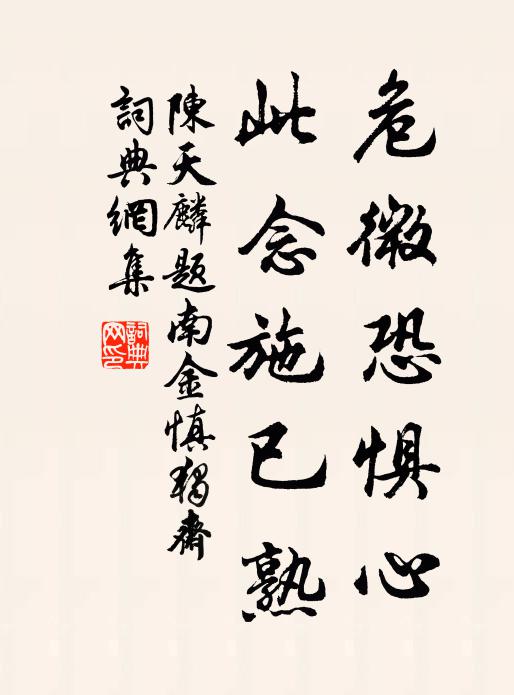 危微恐惧心
此念施已熟
陳天麟题南金慎獨齋
詞典網集
詞典網印